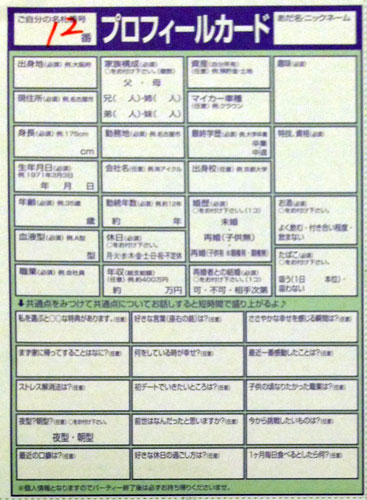 ご自分の名札番号
12
番
プロフィールカード
あだ名・ニックネーム
出身地(必須) 例,大阪府
家族構成(必須)
○をお付け下さい。(複数)
父 ・ 母
兄( 人)・姉( 人)
弟( 人)・妹( 人)
資産(自分所有)
(任意) 例,預貯金・土地
趣味(必須)
現住所(必須) 例,名古屋市
マイカー車種
(任意) 例,クラウン
身長(必須) 例,175cm
cm
勤務地(必須) 例,名古屋市
最終学歴(必須) 例,大学卒業
卒業
中退
特技、資格(必須)
生年月日(必須)
例 1971年3月3日
年 月 日
会社名(任意) 例,㈱アイクル
出身校(任意) 例,京都大学
年齢(必須) 例,35歳
歳
勤続年数(必須) 例,約12年
約 年
婚歴(必須)
○をお付け下さい。(1コ)
未婚
再婚(子供無)
再婚(子供有
お酒(必須)
○をお付け下さい。(1コ)
よく飲む・付き合い程度・
飲まない
血液型(必須) 例,A型
型
休日(必須)
○をお付け下さい。
月火水木金土日祝不定休
たばこ(必須)
○をお付け下さい。(1コ)
吸う(1日 本位)・
吸わない
職業(必須) 例,会社員
年収(総支給額)
(任意) 例,約400万円
約 万円
再婚者との結婚(必須)
○をお付け下さい。(1コ)
可・不可・相手次第
⬇共通点をみつけて共通点についてお話しすると短時間で盛り上がるよ♪
私を選ぶと○○な特典があります。(任意)
好きな言葉(座右の銘)は?(任意)
ささやかな幸せを感じる瞬間は?(任意)
まず家に帰ってすることはなに?(任意)
何をしている時が幸せ?(任意)
最近一番感動したことは?(任意)
ストレス解消法は?(任意)
初デートでいきたいところは?(任意)
子供の頃なりたかった職業は?(任意)
夜型?朝型?(任意) ○をお付け下さい。
夜型・朝型
前世はなんだったと思いますか?(任意)
今から挑戦したいものは?(任意)
最近の口癖は?(任意)
好きな休日の過ごし方は?(任意)
1ヶ月毎日食べるとしたら何?(任意)
※個人情報となりますのでパーティー終了後は必ずお持ち帰りくださいませ。